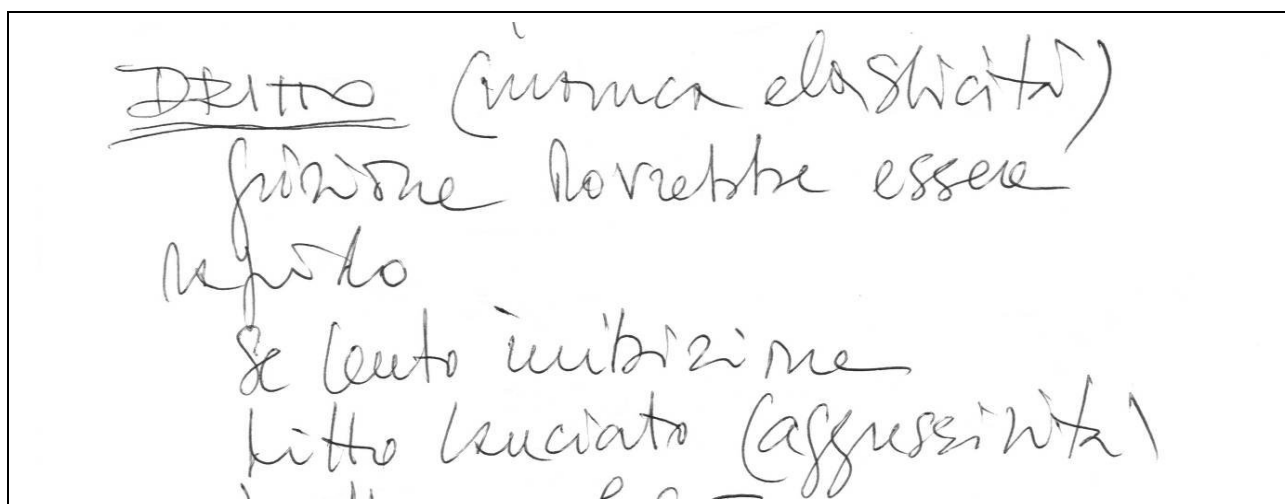 DRITTO (manca elasticità)
dovrebbe essere
rapido
se lento inibizione
lanciato (aggressività)